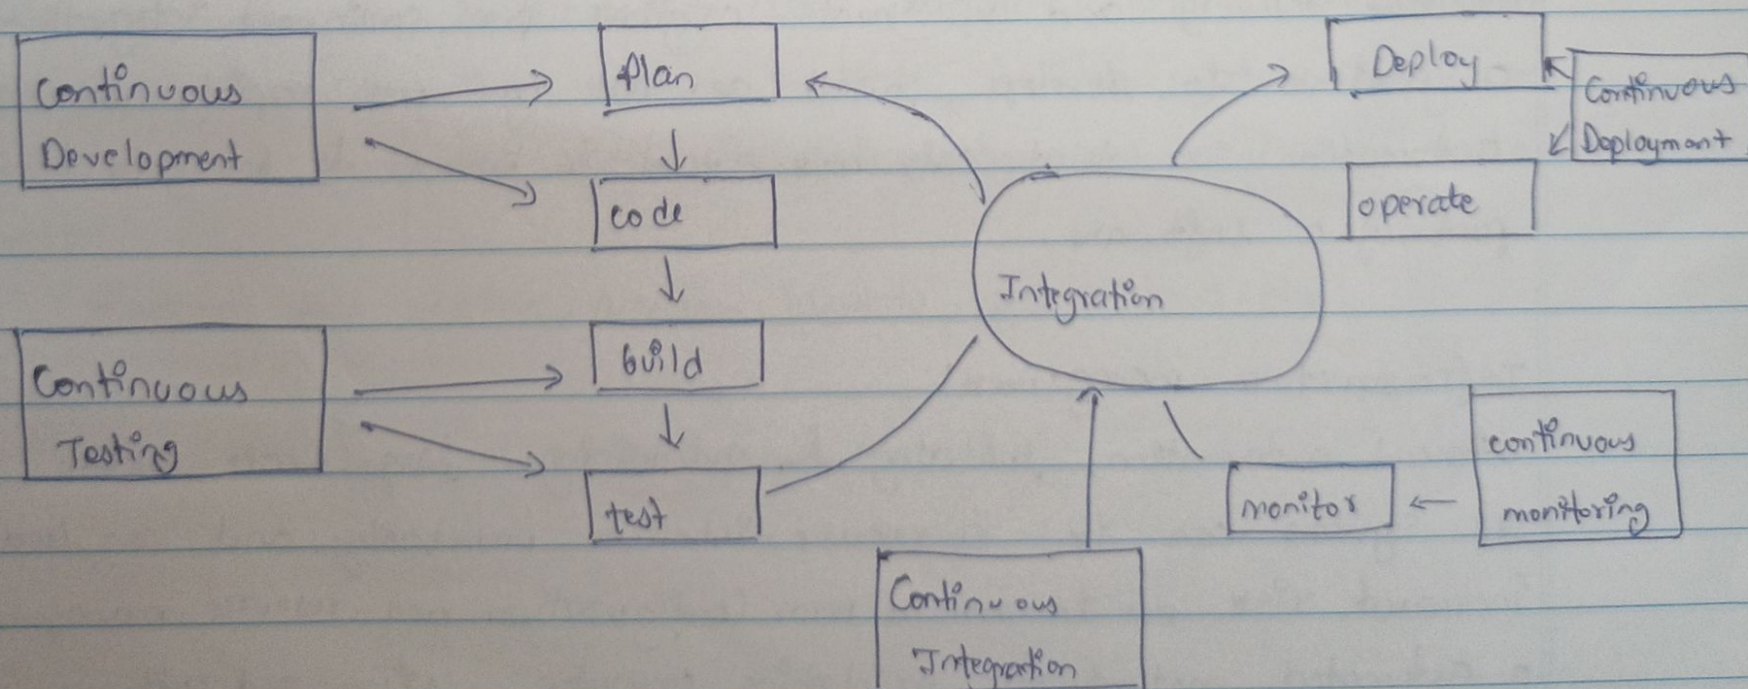 Continuous
Development
Plan
code
build
test
Continuous
Testing
Integration
Deploy
Continuous
Deployment
operate
monitor
continuous
monitoring
Continuous
Integration